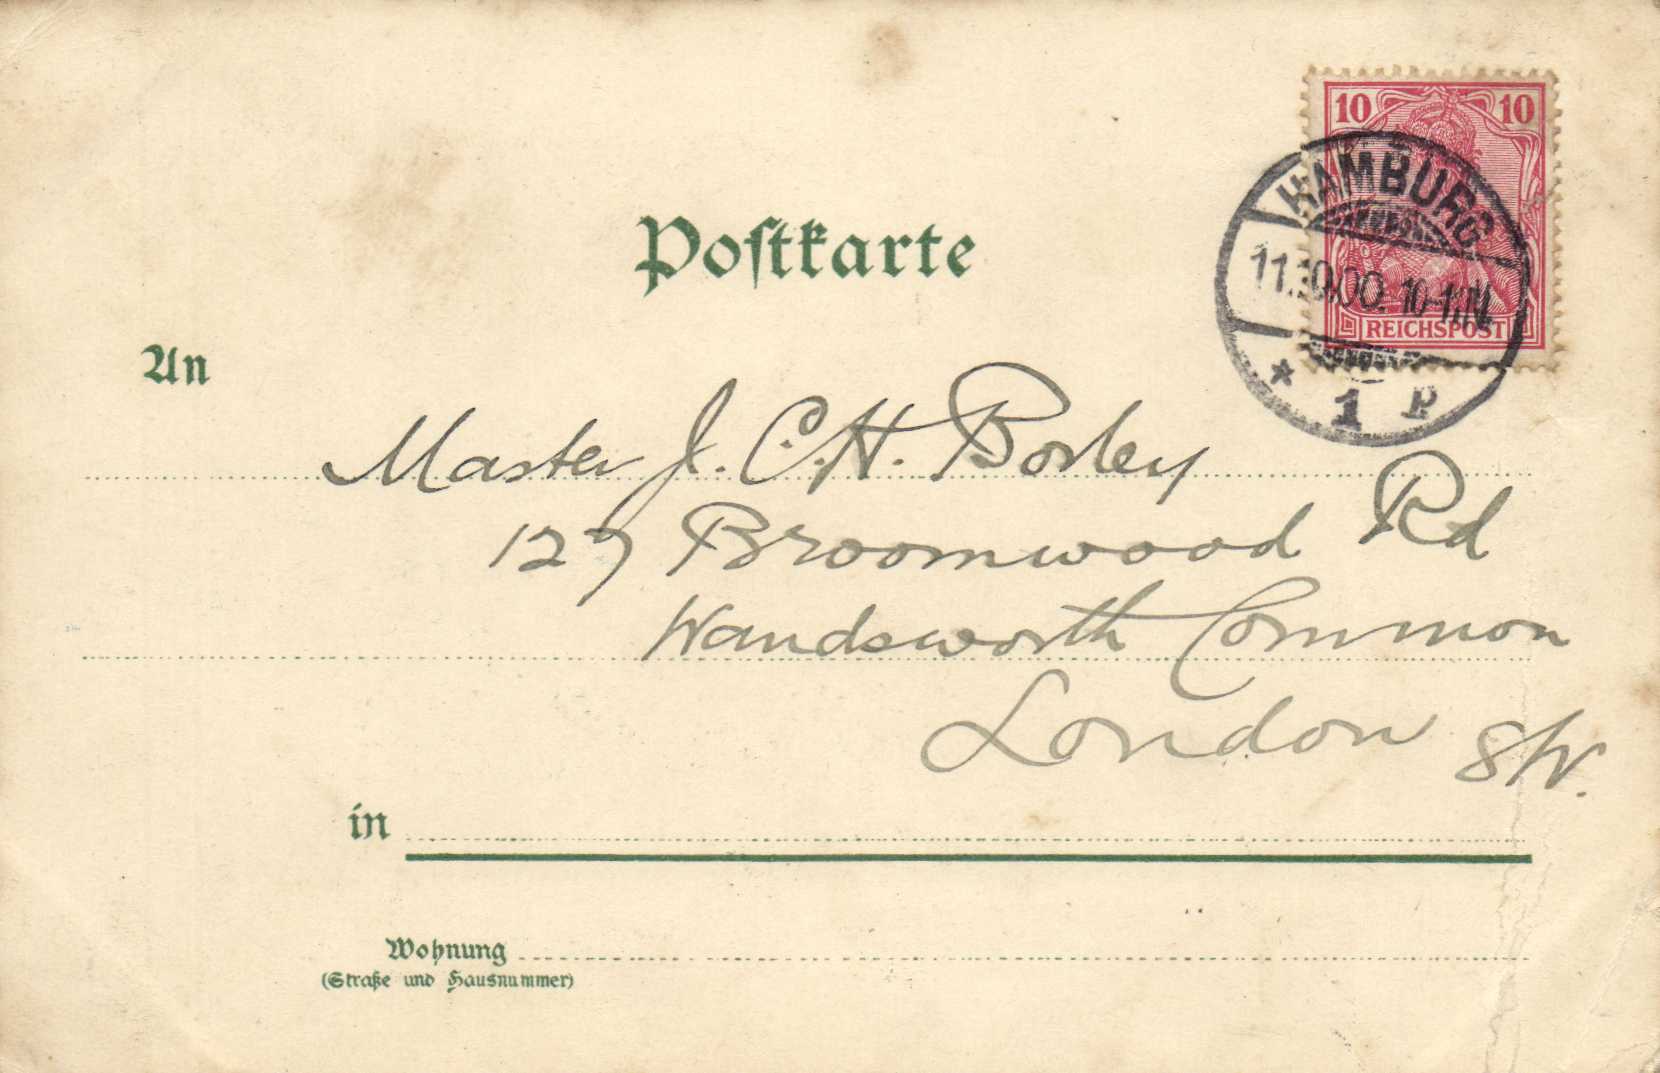 10 10
HAMBURG
11.10.00. 10-11.N.
* 1 P
REICHSPOST
Postkarte
An
Master J. C. H. Borley
127 Broomwood Rd
Wandsworth Common
London SW.
in
Wohnung
(Straße und Hausnummer)